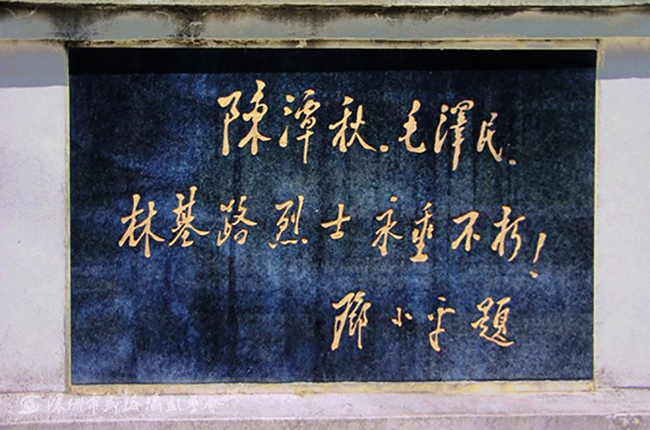 陳潭秋.毛澤民.
林基路烈士永垂不朽！
鄧小平題
深圳市民族攝影學會